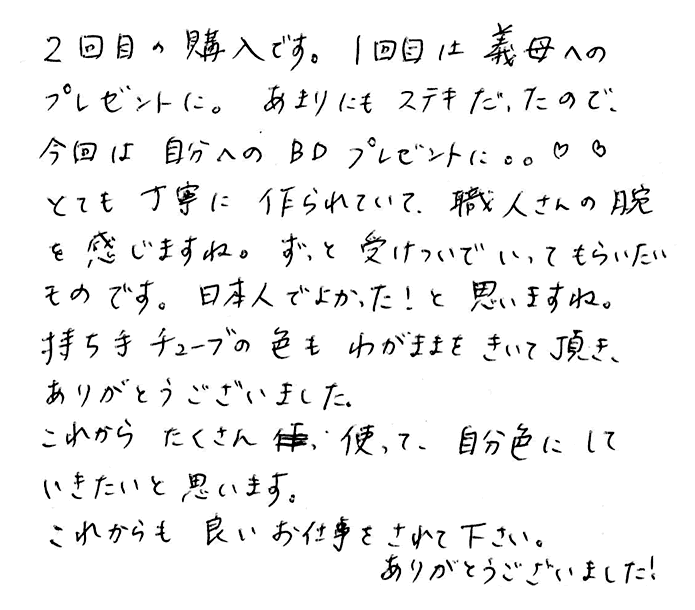 2回目の購入です。1回目は義母への
プレゼントに。あまりにもステキだったので、
今回は自分へのBDプレゼントに。。♡♡
とても丁寧に作られていて、職人さんの腕
を感じますね。ずっと受けついでいってもらいたい
ものです。日本人でよかった!と思いますね。
持ち手チューブの色もわがままをきいて頂き、
ありがとうございました。
これからたくさん使って、自分色にして
いきたいと思います。
これからも良いお仕事をされて下さい。
ありがとうございました!